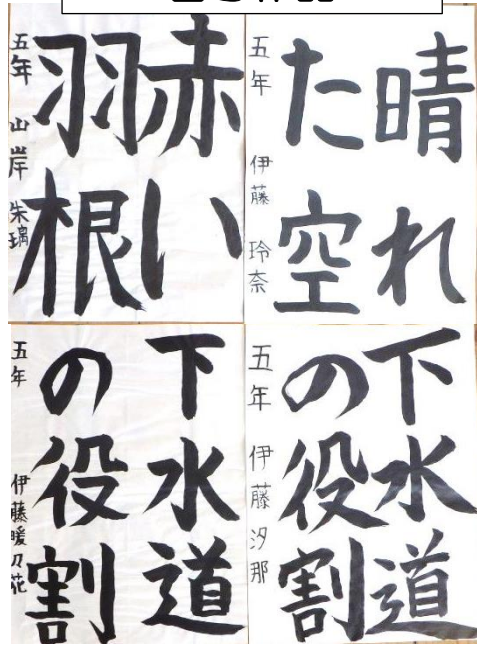 晴れ
た空
五年 伊藤 玲奈
赤い
羽根
五年 山岸 朱璃
下水道
の役割
五年 伊藤汐那
下水道
の役割
五年 伊藤暖乃花